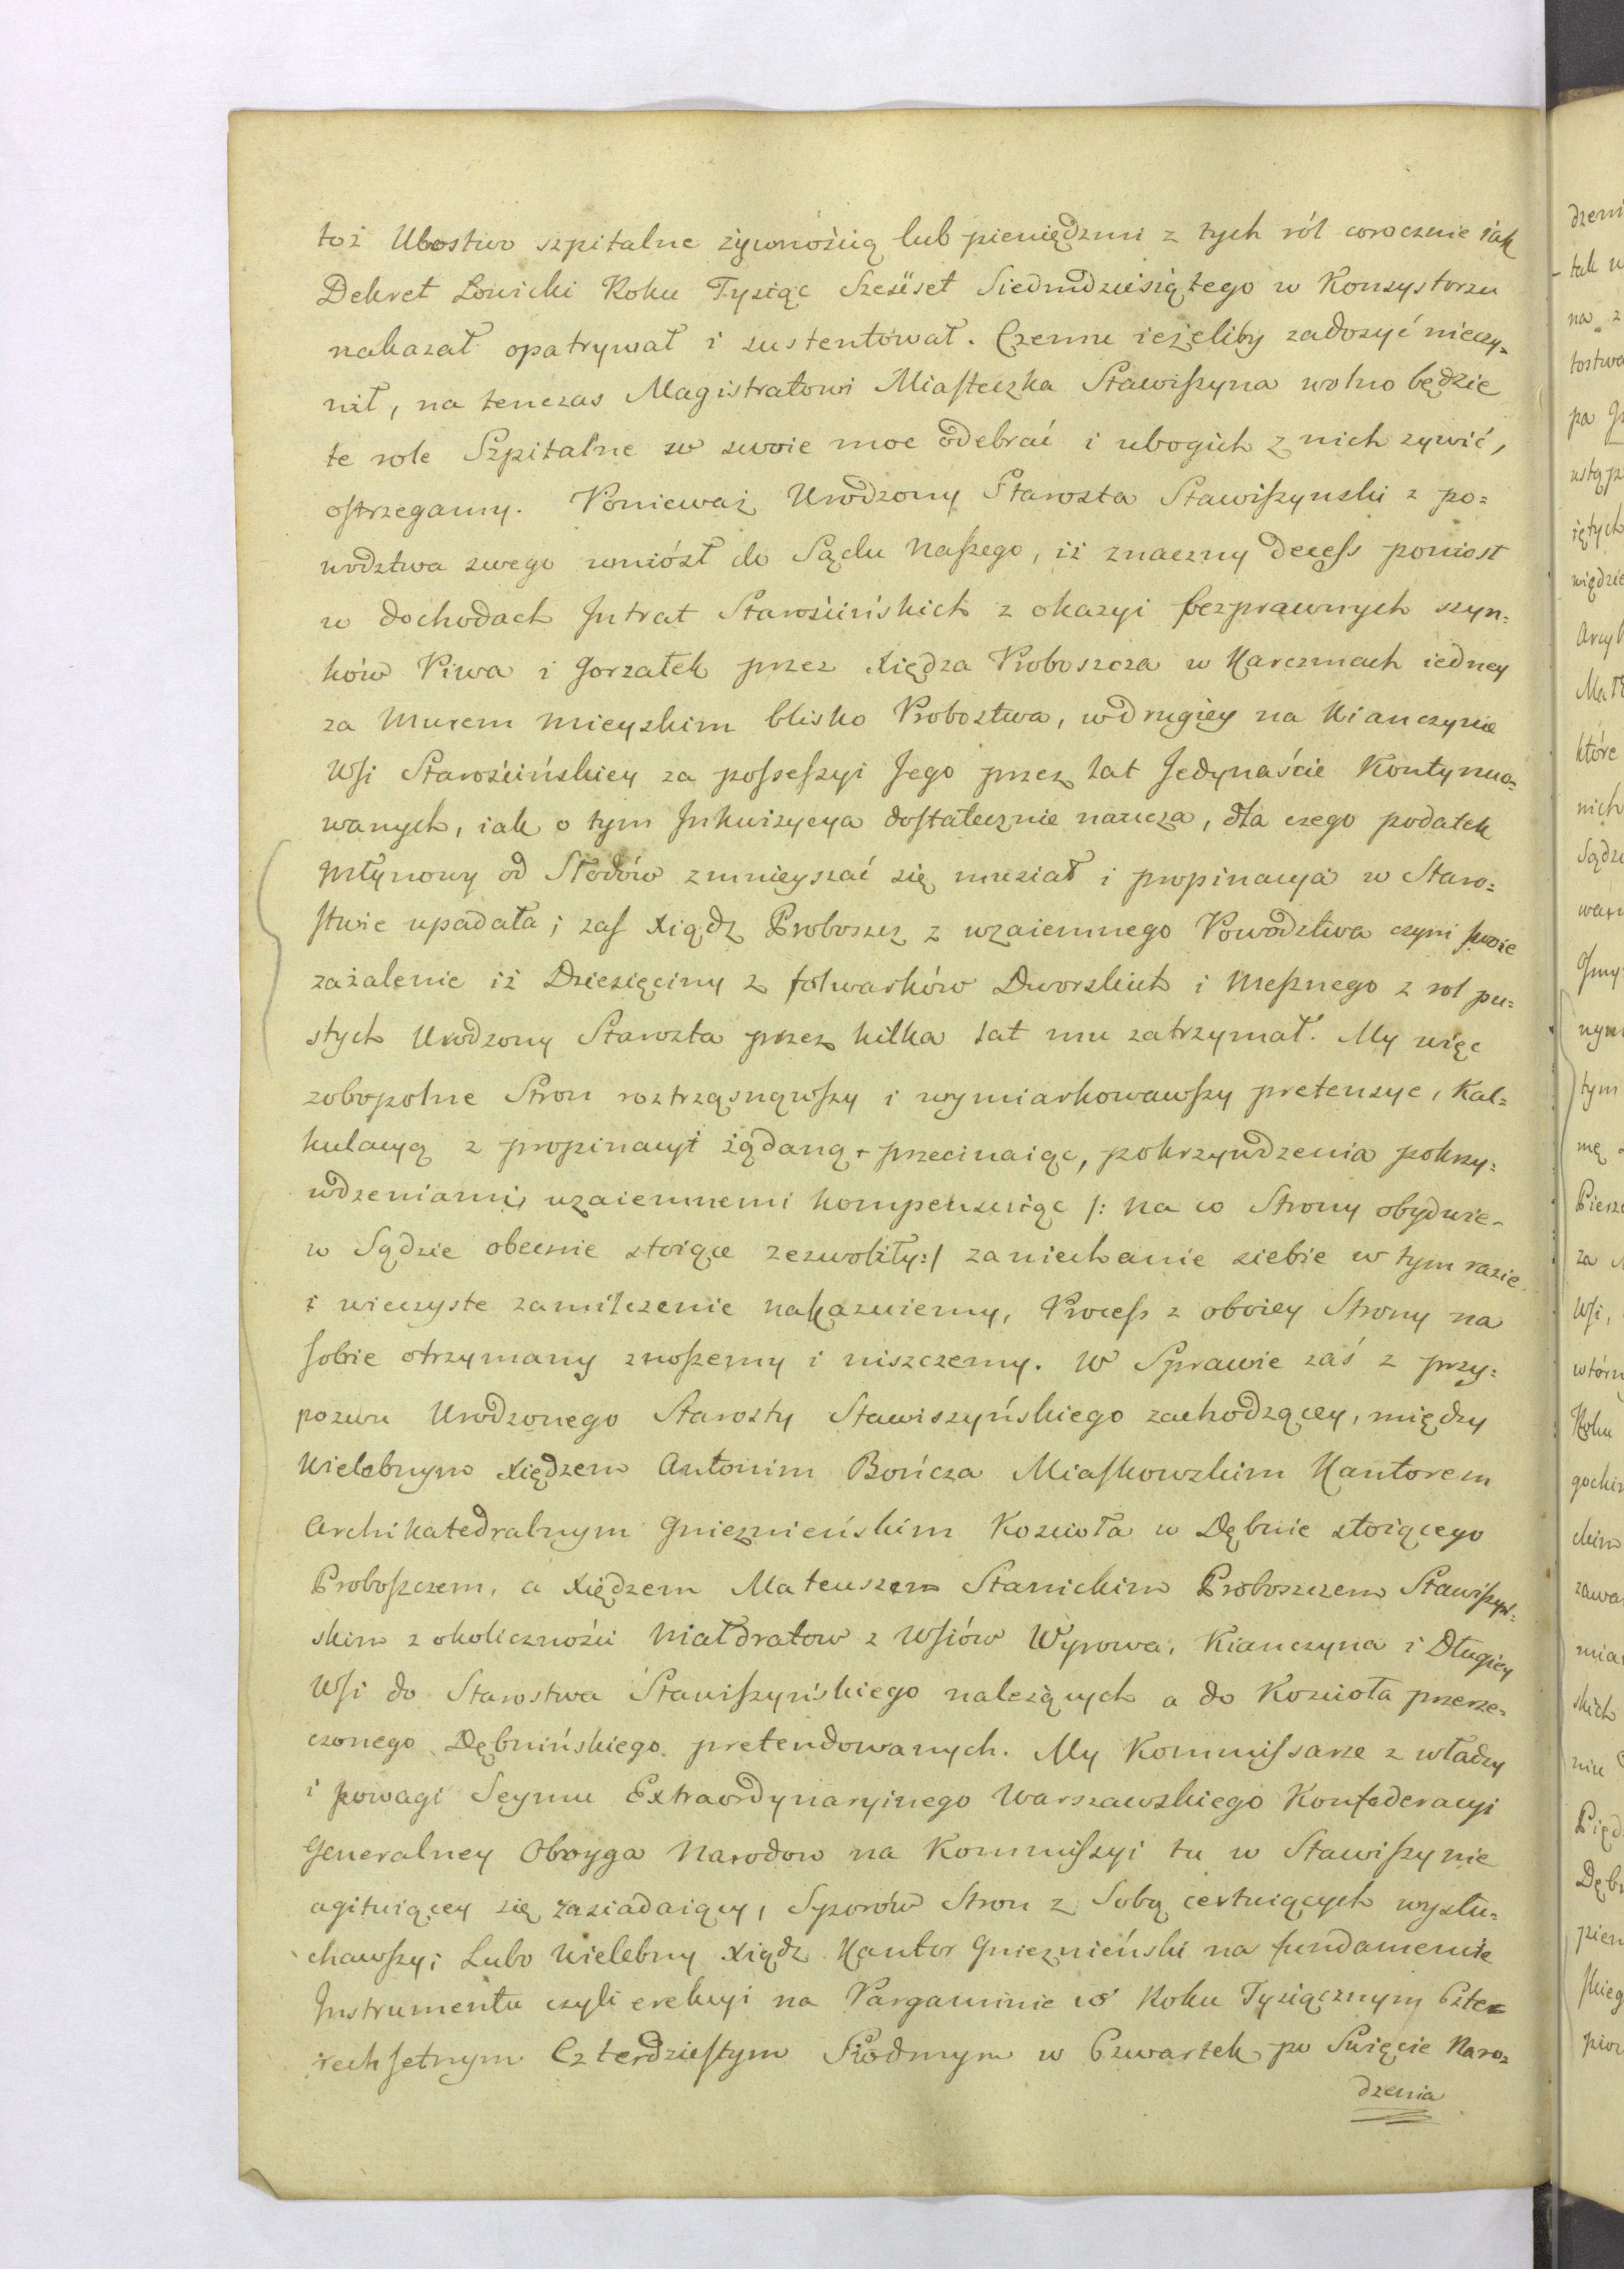 toż Ubostwo szpitalne żywnością lub pieniędzmi z tych ról corocznie iak
Dekret Łowicki Roku Tysiąc Sześset Siedmdziesiątego w Konsystorzu
nakazał opatrywał i sustentował. Czemu ieżeliby zadosyć nieczy=
nił, na tenczas Magistratowi Miasteczka Stawiszyna wolno będzie
te role Szpitalne w swoie moc odebrać i ubogich z nich żywić,
ostrzegamy. Ponieważ Urodzony Starosta Stawiszynski z po=
wodztwa swego wniósł do Sądu Naszego, iż znaczny decess poniosł
w dochodach Intrat Starościńskich z okazyi bezprawnych szyn=
ków Piwa i Gorzałek przez Xiędza Proboszcza w Karczmach iedney
za Murem Mieyskim blisko Probostwa, w drugiey na Kianczynie
Wsi Starościńskiey za possessyi Jego przez lat Jedynaście Kontynuo=
wanych, iak o tym Inkwizycya dostatecznie naucza, dla czego podatek
Młynowy od Słodów zmnieyszać się musiał i propinacya w Staro=
stwie upadała; zaś Xiądz Proboszcz z wzaiemnego Powodztwa czyni swoie
zażalenie iż Dziesięciny z folwarków Dworskich i Mesznego z rol pu=
stych Urodzony Starosta przez kilka lat mu zatrzymał. My więc
zobopolne Stron roztrząsnąwszy i wymiarkowawszy pretensye, Kal=
kulacyą z propinacyi żądaną przecinaiąc, pokrzywdzenia pokrzy=
wdzeniami wzaiemnemi kompensuiąc /: na co Strony obydwie
w Sądzie obecnie stoiące zezwoliły:/ zaniechanie siebie w tym razie
i wieczyste zamilczenie nakazuiemy, Process z oboiey Strony na
sobie otrzymany znosiemy i niszczemy. W Sprawie zaś z przy=
pozwu Urodzonego Starosty Stawiszyńskiego zachodzącey, między
Wielebnym Xiędzem Antonim Bończa Miaskowskim Kantorem
Archikatedralnym Gnieznieńskim Kościoła w Dębnie stoiącego
Proboszczem, a Xiędzem Mateuszem Stanickim Proboszczem Stawiszyń=
skim z okoliczności Małdratow z Wsiów Wyrowa, Kianczyna i Długiey
Wsi do Starostwa Stawiszyńskiego należących a do Kościoła przerze=
czonego Dębnińskiego pretendowanych. My Kommissarze z władzy
i powagi Seymu Extraordynaryinego Warszawskiego Konfederacyi
Generalney Oboyga Narodow na Kommissyi tu w Stawiszynie
agituiącey się zasiadaiący, Sporów Stron z Sobą certuiących wysłu=
chawszy; Lubo Wielebny Xiądz Kantor Gnieznieński na fundamencie
Instrumentu czyli erekcyi na Pargaminie w Roku Tysiącznym Czte=
rechsetnym Czterdziestym Siodmym w Czwartek po Swięcie Naro=
dzenia